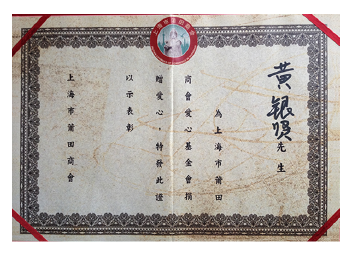 黃銀賢先生
為上海市莆田
商會愛心基金會捐
贈愛心，特發此證
以示表彰
上海市莆田商會